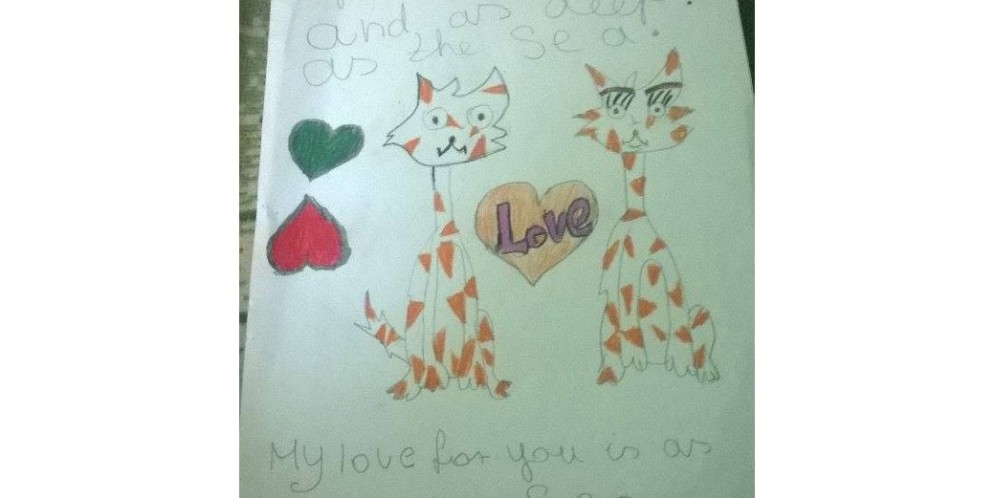 and as deep.
as the sea.
Love
My love for you is as
Sea